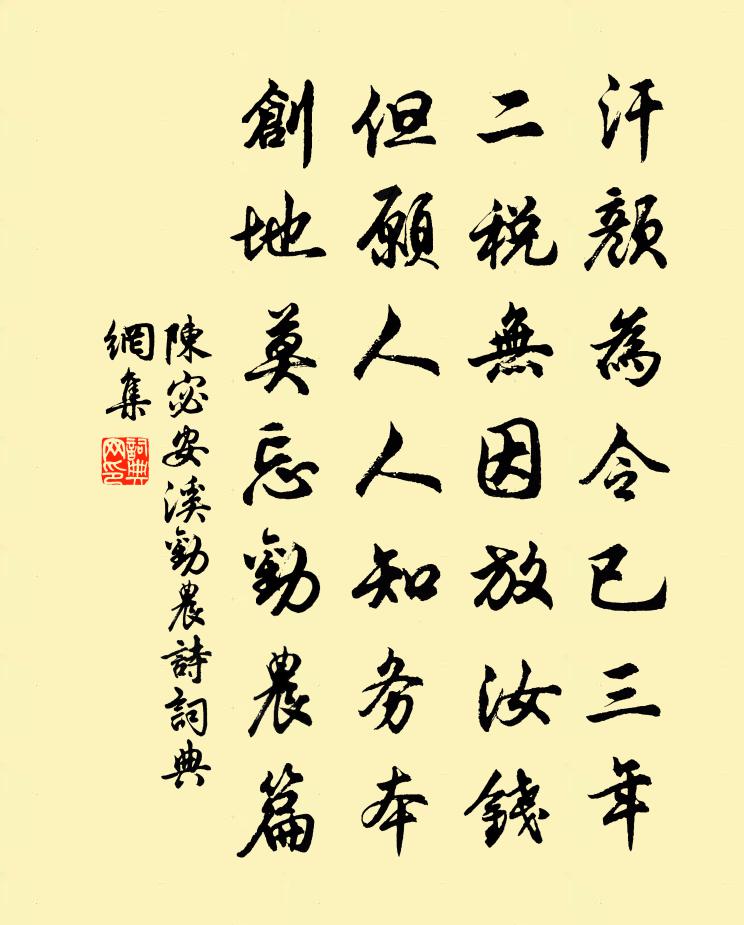 汗顏為令已三年
二税無因放汝錢
但願人人知务本
創地莫忘勸農篇
陳宓安溪勸農詩詞典
網集
詞典
网印